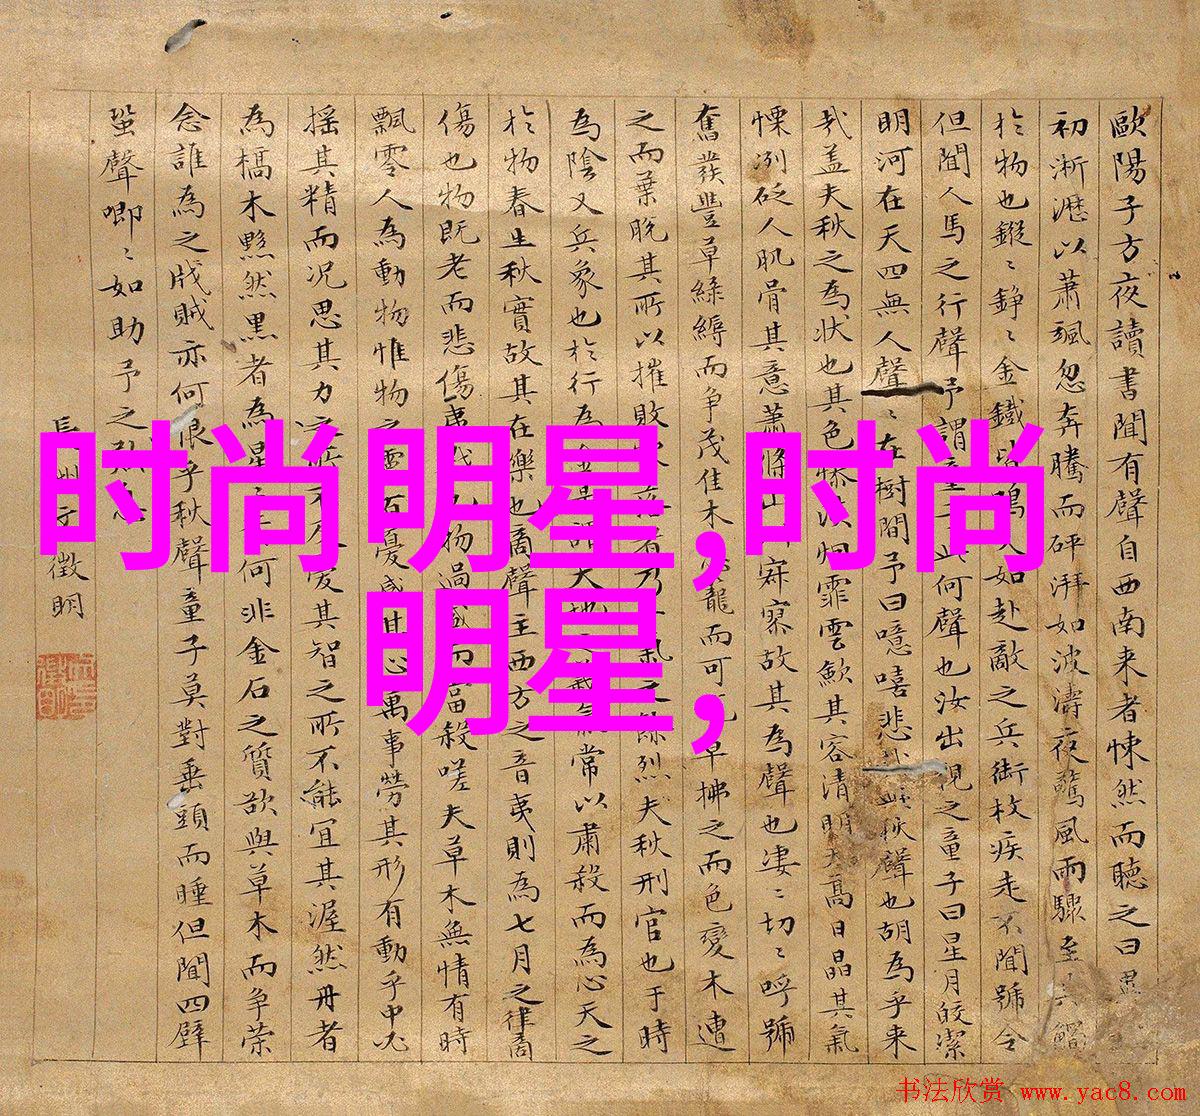 歐陽子方夜讀書聞有聲自西南来者悚然而聽之曰
初淅瀝以蕭颯忽奔騰而砰湃如波濤夜驚風雨驟至其觸
於物也鏦〻錚〻金鐵皆鳴又如赴敵之兵銜枚疾走不聞號令
但聞人馬之行聲予謂童子此何聲也汝出視之童子曰星月皎潔
明河在天四無人聲〻在樹間予曰噫嘻悲哉此秋聲也胡為乎来
哉盖夫秋之為狀也其色慘淡烟霏雲歛其容清明天高日晶其氣
慄冽砭人肌骨其意蕭條山寂寥故其為聲也凄〻切〻呼號
奮發豐草綠縟而争茂佳木籠而可草拂之而色變木遭
之而葉脫其所以摧敗落者乃氣之餘烈夫秋刑官也于時
為陰又兵象也於行為金是謂天地氣常以肅殺而為心天之
於物春生秋實故其在樂也商聲主西方之音夷則為七月之律商
傷也物既老而悲傷夷戮也物過盛而當殺嗟夫草木無情有時
飄零人為動物惟物之靈百憂感其心萬事勞其形有動乎中必
摇其精而况思其力之所不及憂其智之所不能宜其渥然丹者
為槁木黟然黑者為星何非金石之質欲與草木而争荣
念誰為之戕賊亦何恨乎秋聲童子莫對垂頭而睡但聞四壁
蛩聲唧〻如助予之
長洲文徵明
时尚明星,时尚
明星,
书法欣赏 www.yac8.com